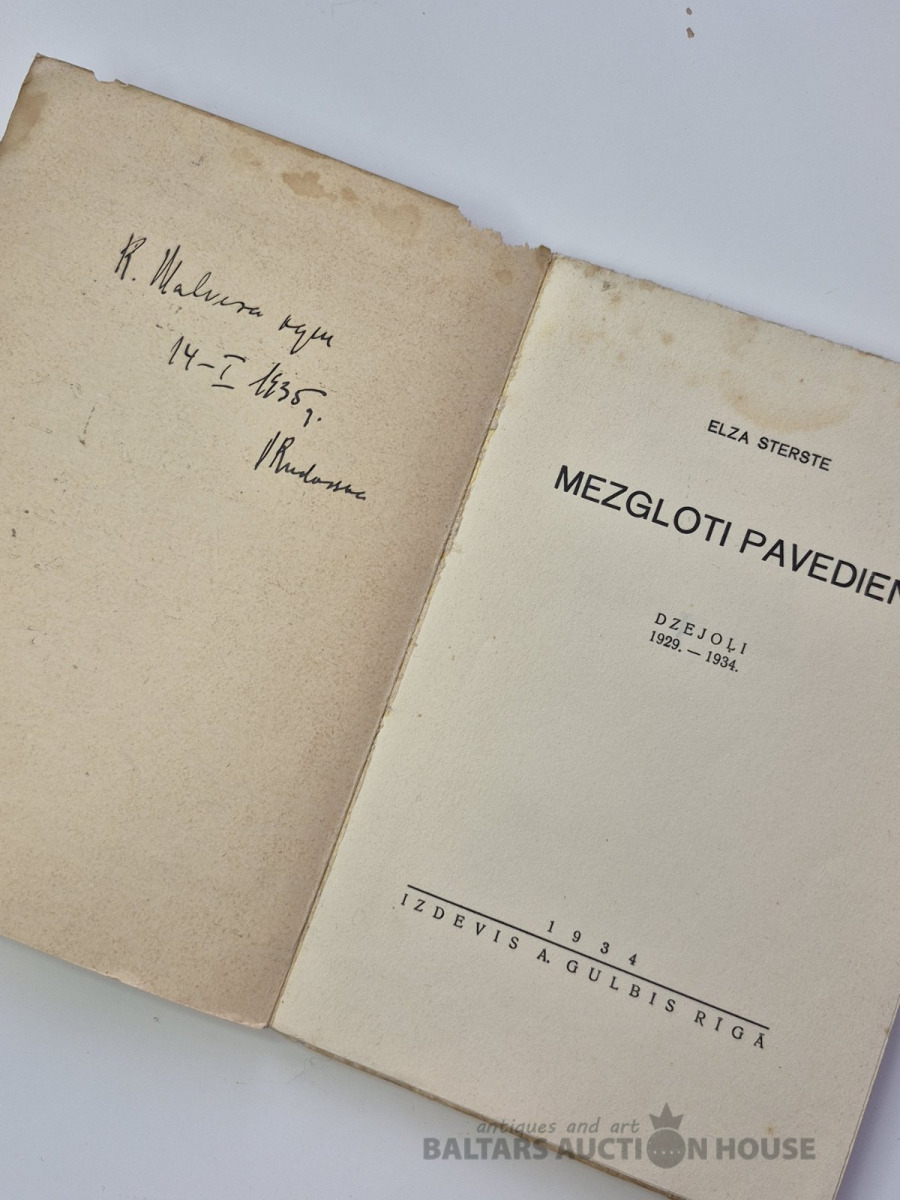 14-I 1935 g.
ELZA STERSTE
MEZGLOTI PAVEDIEN
DZEJOĻI
1929. — 1934.
1934
IZDEVIS A. GULBIS RĪGĀ
antiques and art
BALTARS AUCTION HOUSE